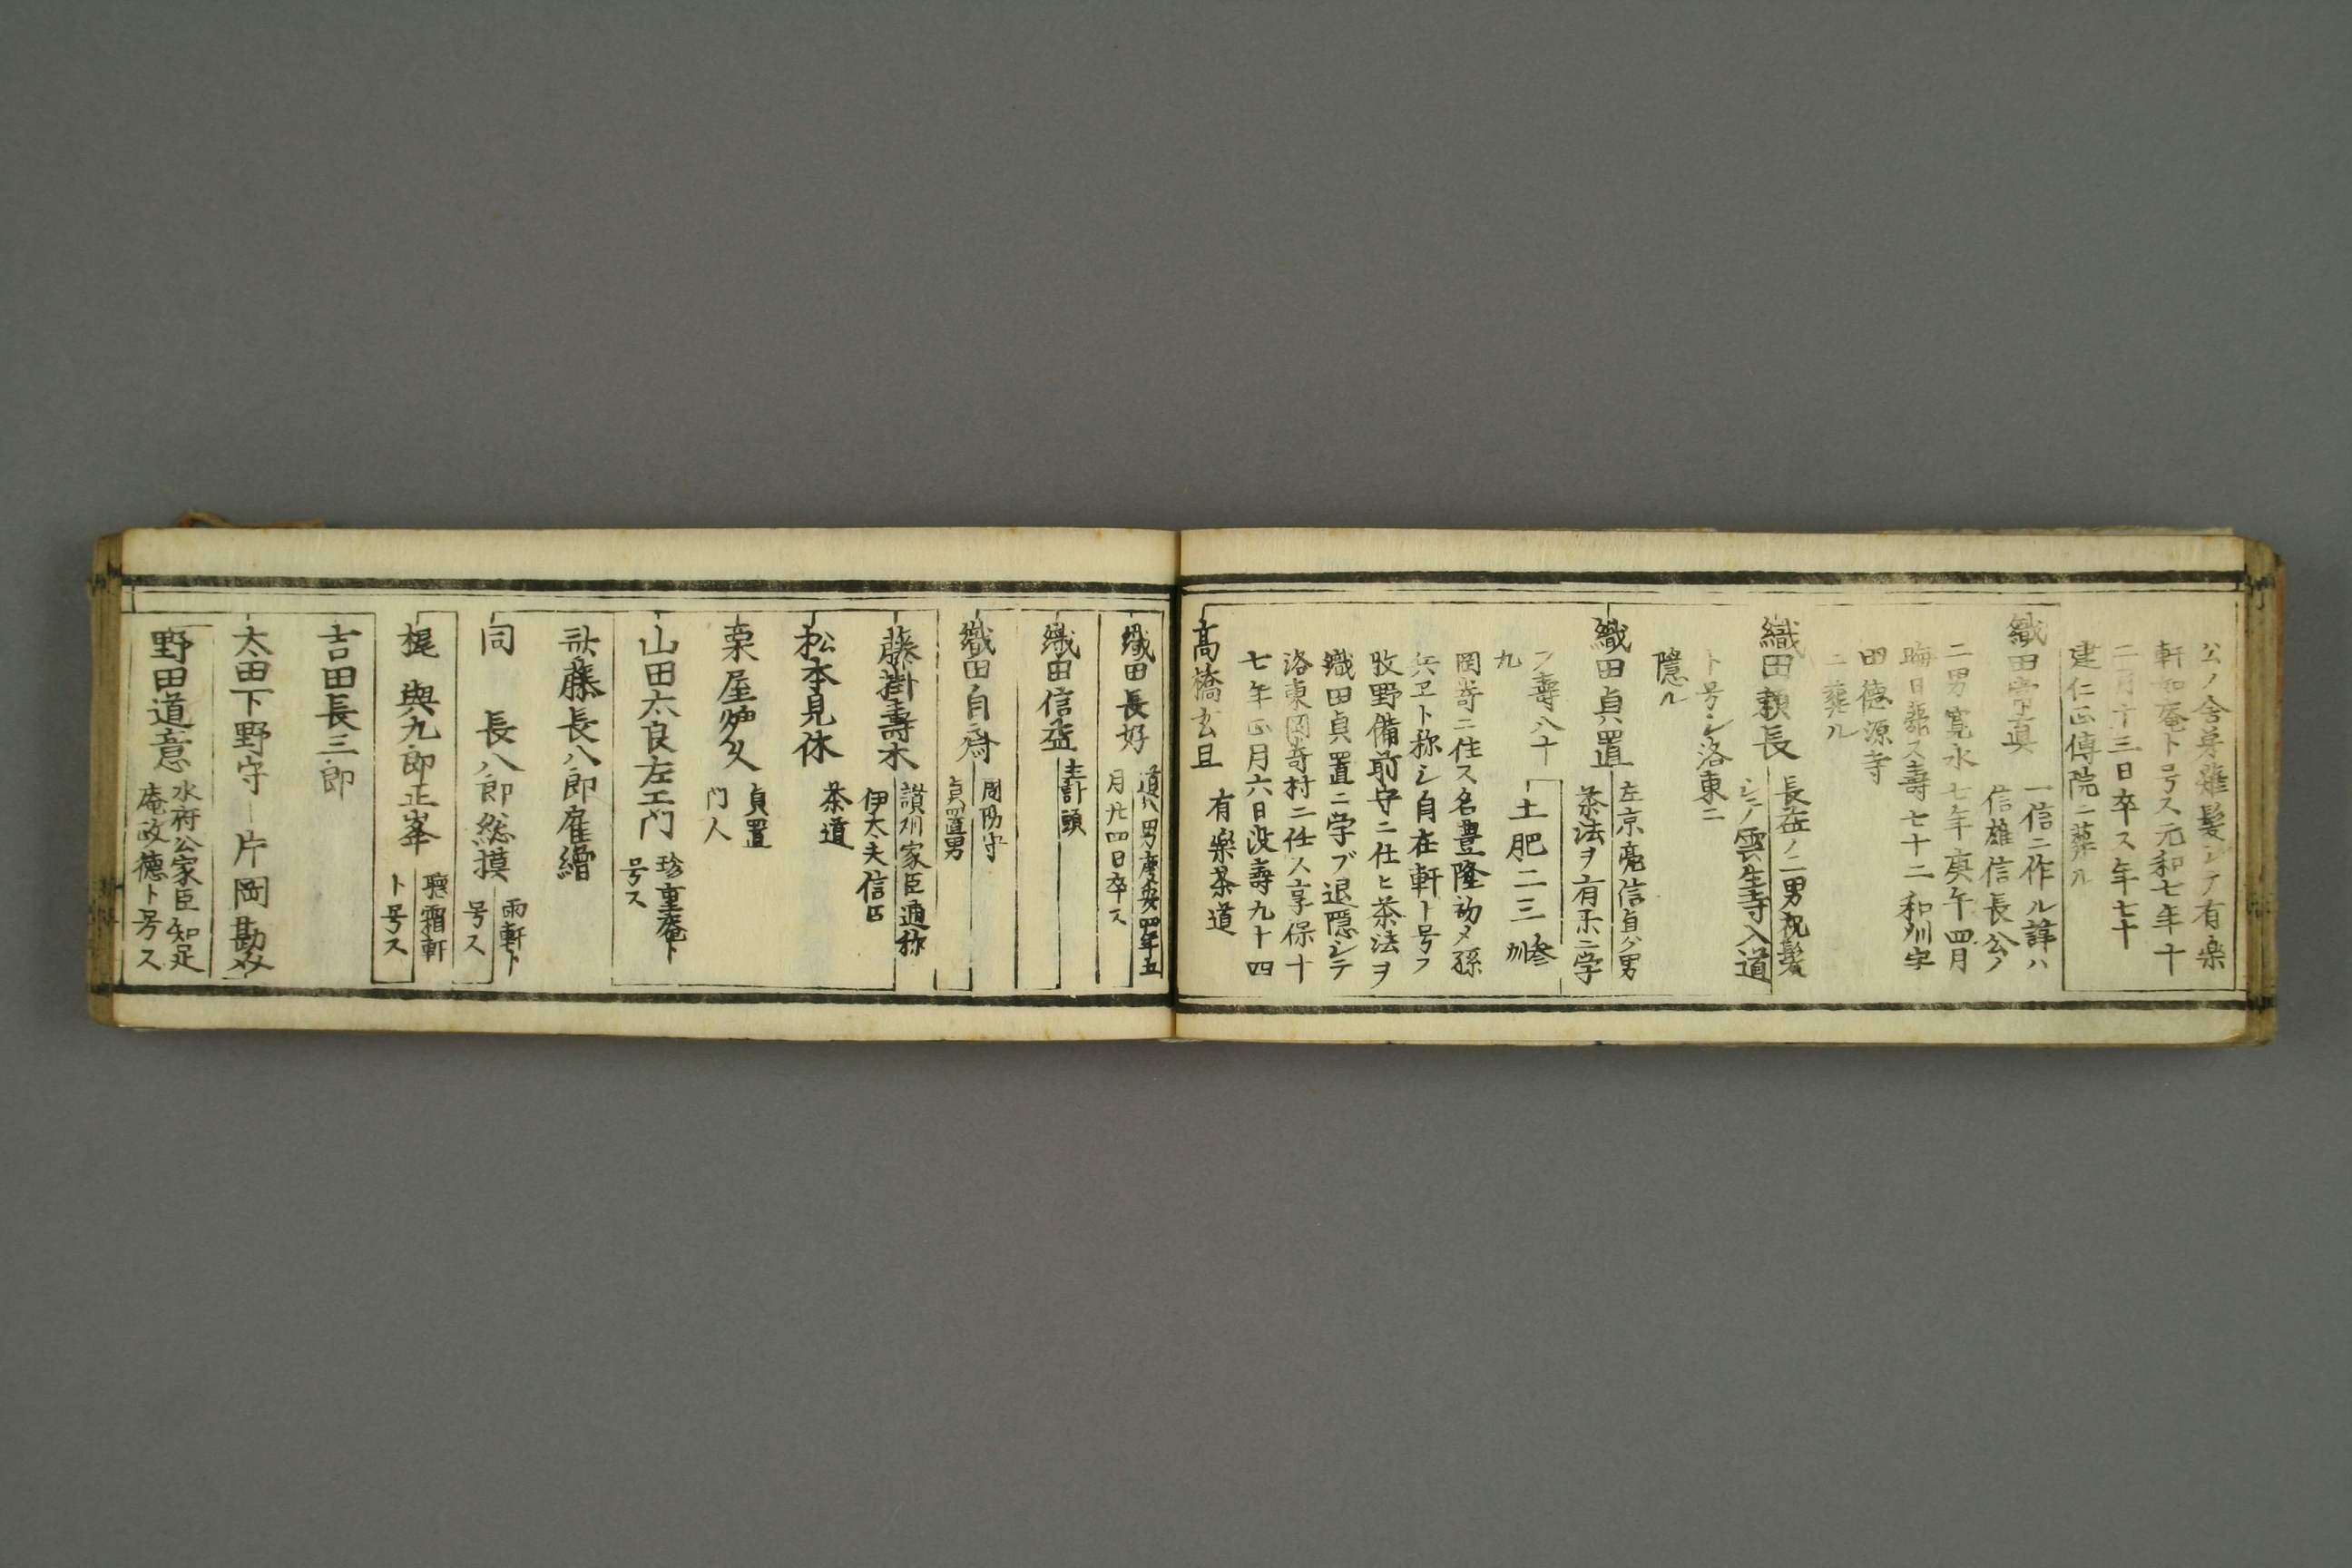 公ノ舎弟薙髪シテ有楽
軒如庵ト号ス元和七年十
二月十三日卒ス年七十
建仁正傳院ニ葬ル
織田常真
一信ニ作ル諱ハ
信雄信長公ノ
二男寛永七年庚午四月
晦日薨ス壽七十二和刕宇
田徳源寺
ニ葬ル
織田頼長
長益ノ二男祝髪
シテ雲生寺入道
ト号シ洛東ニ
隠ル
織田貞置
左京亮信貞ガ男
茶法ヲ有楽ニ学
フ壽八十
九
土肥二三
参刕
岡嵜ニ住ス名豊隆幼メ孫
兵卫ト称シ自在軒ト号フ
牧野備前守ニ仕ヒ茶法ヲ
織田貞置ニ学ブ退隠シテ
洛東岡嵜村ニ仕ス享保十
七年正月六日没壽九十四
髙橋玄旦
有楽茶道
織田長好
道八男慶安四年五
月廿四日卒ス
織田信益
主計頭
織田自斎
周防守
貞置男
藤掛壽木
讃刕家臣通称
伊太夫信臣
松本見休
茶道
栗屋炉久
貞置
門人
山田太良左エ门
珍重庵ト
号ス
武藤長八郎雇繪
同 長八郎総摸
雨軒ト
号ス
梶 與九郎正峯
聴霜軒
ト号ス
吉田長三郎
太田下野守
片岡勘
野田道意
水府公家臣知足
庵政徳ト号ス